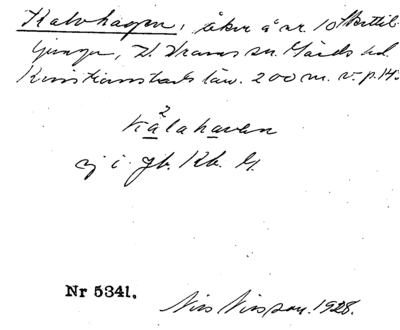 Kalvhagen, åker å nr. 10 Skättil-
junga, V. Vrams sn. Gärds hd.
Kristianstads län. 200 m. v. p. 143
kalahaven
ej i jb. Kb. G.
Nr 5341.
Nils Nilsson. 1928.